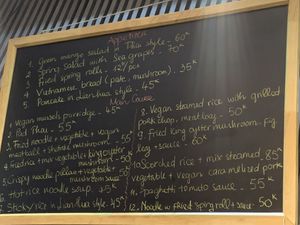 Appetizer
1. Green mango salad Thai style - 60K
2. Spring salad with Sea grapes - 70K
3. Fried spring rolls - 12K/pc
4. Vietnamese bread (pate, mushroom) - 35K
5. Pancake in Dien Hoa style - 45K
Main Course
1. Vegan munsik porridge - 45K
2. Pad Thai - 55K
3. Fried noodle + vegetable + vegan
meatball + mushroom - 55K
mushroom - 50K
5. Crispy noodle + vegetable
mushroom sauce - 55K
6. Hot rice noodle soup - 45K
7. Sticky rice style - 45K
8. Vegan steamed rice with grilled
pork chop, meat leg - 50K
9. Fried king oyster mushroom
leg + sauce - 60K
10. Scorched rice + mix steamed
vegetable + vegan caramelized pork - 85K
11. Spaghetti tomato sauce - 55K
12. Noodle w Fried spring roll + sauce - 50K